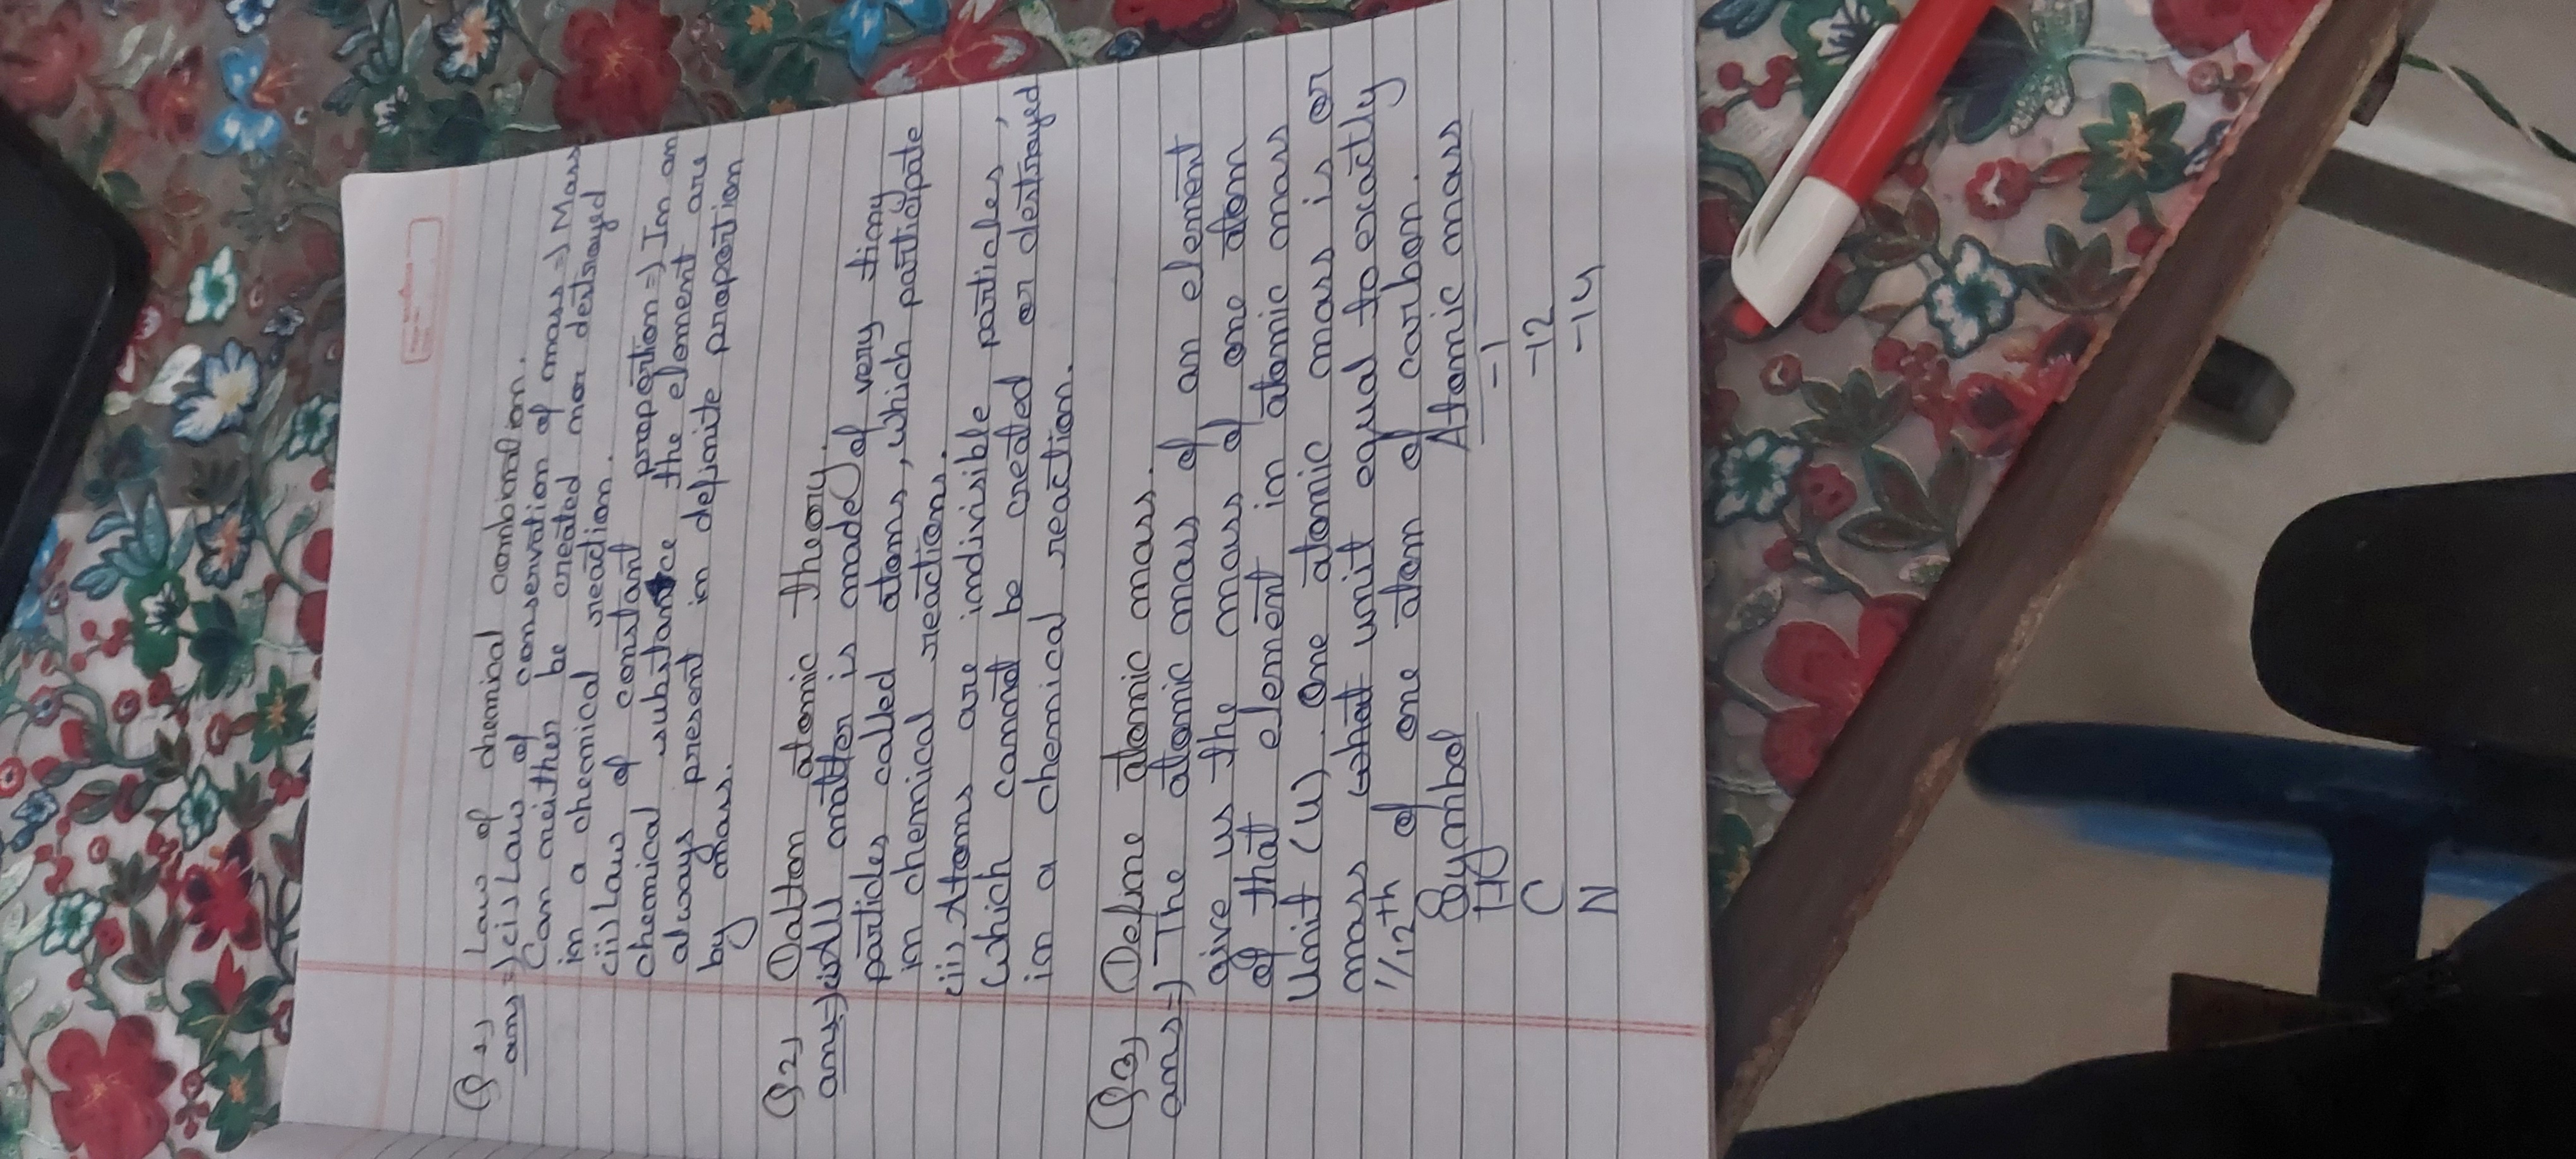 Q 1) Law of chemical combination.
ans=) (i) Law of conservation of mass=) Mass
Can neither be created nor destroyed
in a chemical reaction.
(ii) Law of constant proportion=) In an
chemical substance the element are
always present in definite proportion
by mass.
Q 2) Dalton atomic theory.
ans=) (i) All matter is made of very tiny
particles called atoms, which participate
in chemical reactions.
(ii) Atoms are indivisible particles,
which cannot be created or destroyed
in a chemical reaction.
Q 3) Define atomic mass.
ans=) The atomic mass of an element
give us the mass of one atom
of that element in atomic mass
Unit (u). One atomic mass is or
mass what unit equal to exactly
1/12th of one atom of carbon.
Symbol Atomic mass
H -1
C -12
N -14